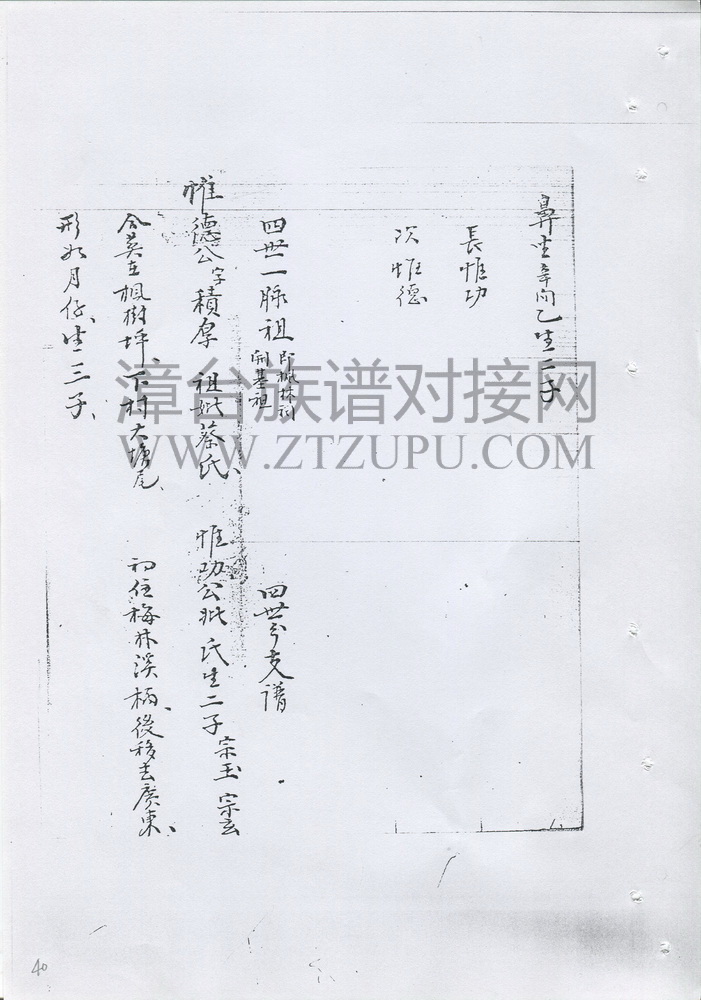 鼻坐辛向乙生二子
長惟功
次惟德
四世一脉祖 即楓林祠開基祖
惟德公字積厚 祖妣蔡氏、
合葬在楓樹坪、下村大塘尾、
形如月仔、生三子、
四世分支譜
惟功公妣 氏生二子宗玉 宗玄
初住梅林溪、後移去廣東、
漳台族谱对接网
WWW.ZTZUPU.COM
40